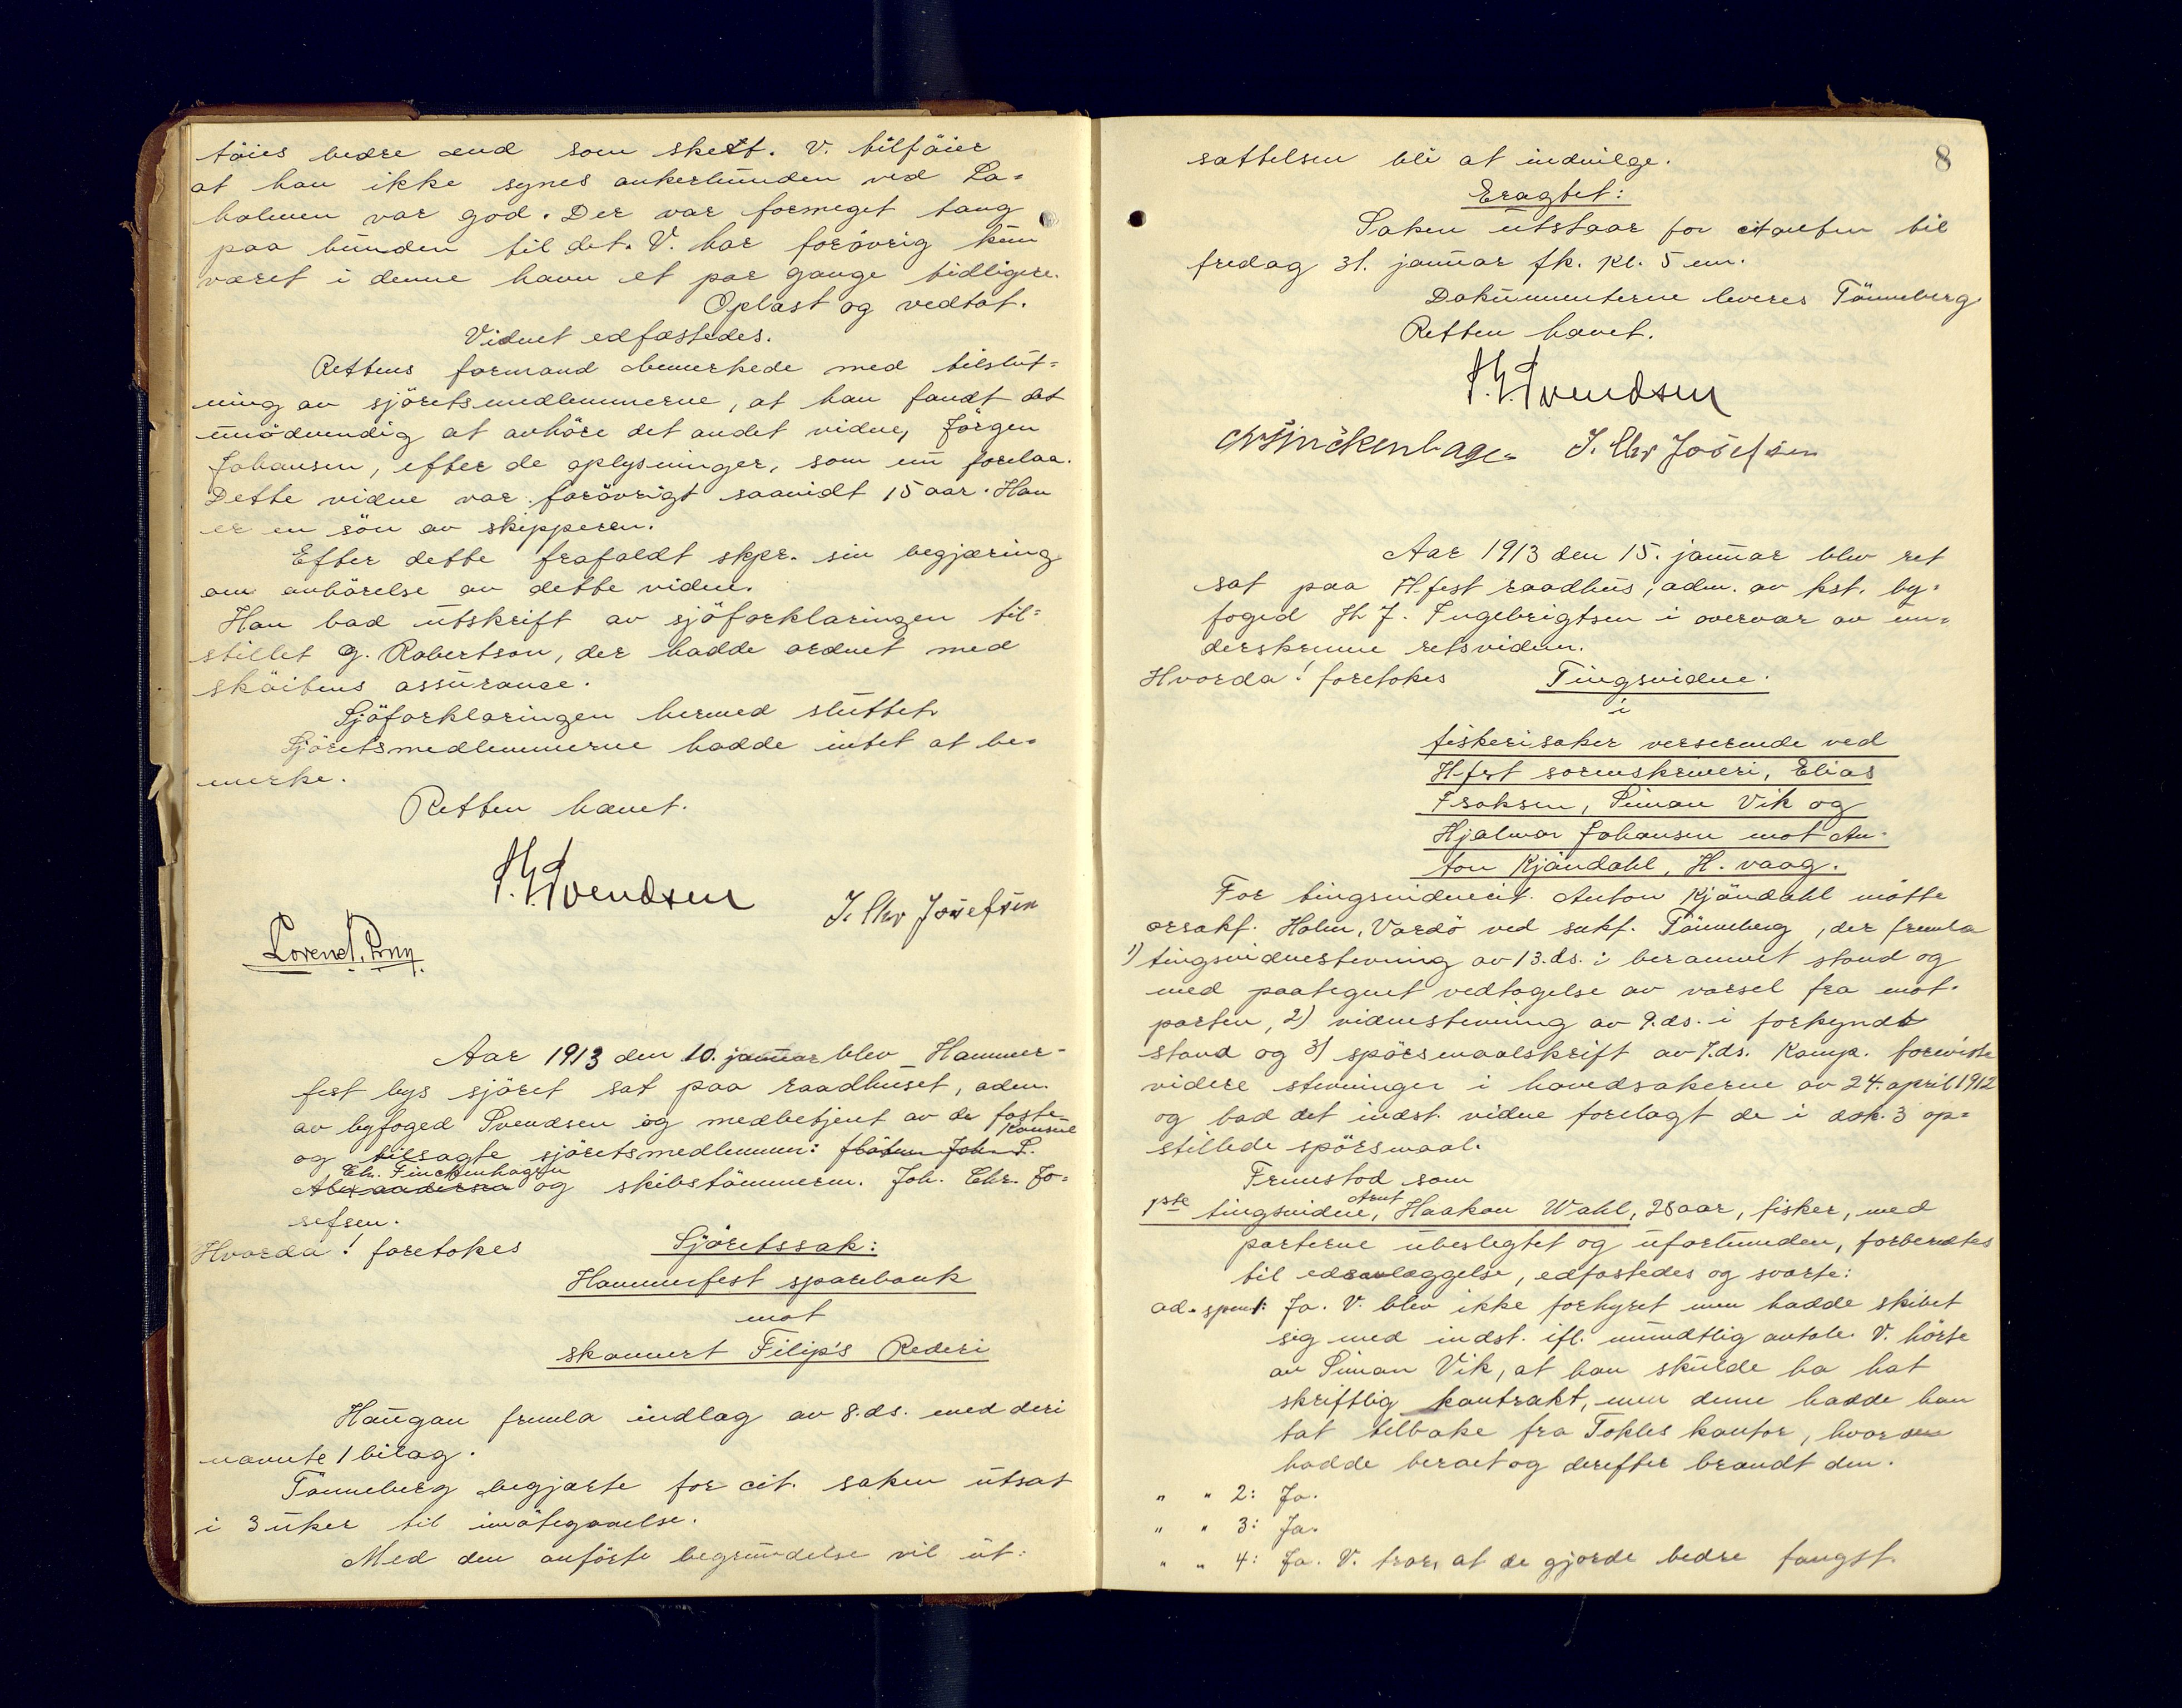 töies bedre end som skedt. V. tilföier
at han ikke synes ankerbunden ved La-
holmen var god. Der var formeget tang
paa bunden til det. V. har forövrig kun
været i denne havn et par gange tidligere.
Oplæst og vedtat.
Vidnet edfæstedes.
Rettens formand bemerkede med tilslut-
ning av sjöretsmedlemmerne, at han fandt det
unödvendig at avhöre det andet vidne, Jörgen
Johansen, efter de oplysninger, som nu forelaa.
Dette vidne var forövrigt saavidt 15 aar. Han
er en sön av skipperen.
Efter dette frafaldt skpr. sin begjæring
om avhörelse av dette vidne.
Han bad utskrift av sjöforklaringen til-
stillet G. Robertson, der hadde ordnet med
sköitens assurance.
Sjöforklaringen hermed sluttet.
Sjöretsmedlemmerne hadde intet at be-
merke.
Retten hævet.
Svendsen
J. Chr Josefsen
Aar 1913 den 10. januar blev Hammer-
fest bys sjöret sat paa raadhuset, adm.
av byfoged Svendsen og medbetjent av de faste
konsul
og tilsagte sjöretsmedlemmer: Joh. S.
Chr. Finckenhagen
Alexandersen og skibstömmerm. Joh. Chr. Jo-
sefsen.
Hvorda! foretokes Sjöretssak:
Hammerfest sparebank
mot
skonnert Filip's Rederi
Haugan fremla indlæg av 8.ds. med deri
nævnte 1 bilag.
Tönneberg begjærte for cit. saken utsat
i 3 uker til imötegaaelse.
Med den anförte begrundelse vil ut-
8
sættelsen bli at indvilge.
Eragtet:
Saken utstaar for citanten til
fredag 31. januar fk. kl. 5 em.
Dokumenterne leveres Tönneberg
Retten hævet.
Svendsen
Chr Finckenhagen J. Chr Josefsen
Aar 1913 den 15. januar blev ret
sat paa H.fest raadhus, adm. av kst. by-
foged H. J. Ingebrigtsen i overvær av un-
derskrevne retsvidner.
Hvorda! foretokes Tingsvidne
i
fiskerisaker verserende ved
H.fest sorenskriveri, Elias
Isaksen, Simon Vik og
Hjalmar Johansen mot An-
ton Kjöndahl, H. vaag.
For tingsvidnecit. Anton Kjöndahl mötte
orsakf. Holm, Vardö ved sakf. Tönneberg, der fremla
1) tingsvidnestevning av 13.ds. i berammet stand og
med paategnet vedtagelse av varsel fra mot-
parten, 2) vidnestevning av 9.ds. i forkyndt
stand og 3) spörsmaalskrift av 7.ds. Komp. foreviste
videre stevninger i hovedsakerne av 24. april 1912
og bad det indst. vidne forelagt de i dok. 3 op-
stillede spörsmaal.
Fremstod som
Arnt
1ste tingsvidne, Haakon Wahl, 28 aar, fisker, med
parterne ubeslegtet og uforbunden, forberedtes
til edsavlæggelse, edfæstedes og svarte:
ad. spm 1: Ja. V. blev ikke forhyret men hadde skibet
sig med indst. ifl. mundtlig avtale. V. hörte
av Simon Vik, at han skulde ha hat
skriftlig kontrakt, men denne hadde han
tat tilbake fra Tokles kontor, hvor den
hadde beroet og derefter brændt den.
" " 2: Ja.
" " 3: Ja.
" " 4: Ja. V. tror, at de gjorde bedre fangst